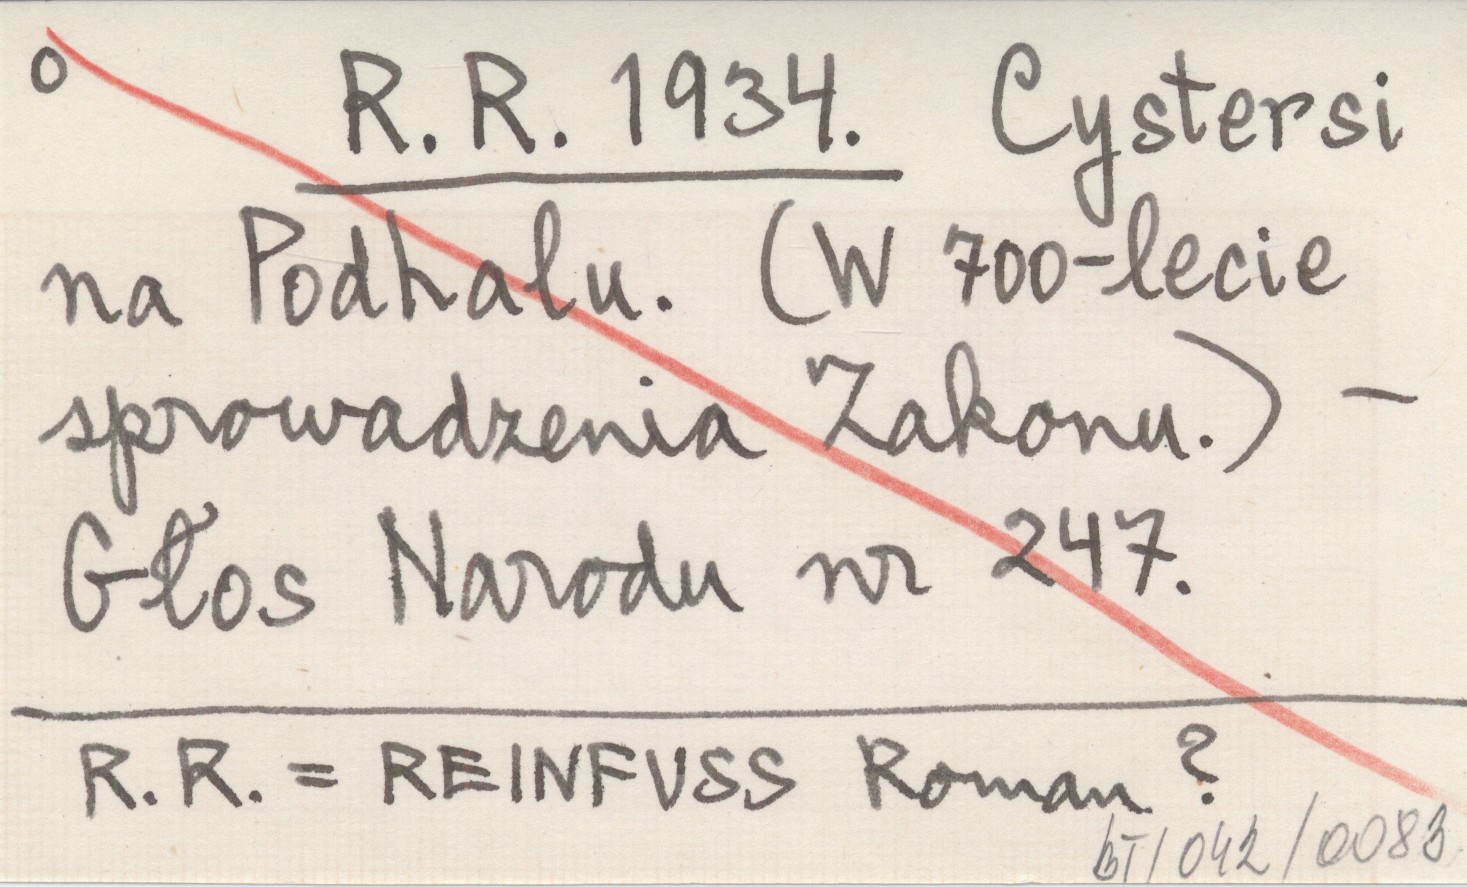 o R. R. 1934. Cystersi
na Podhalu. (W 700-lecie
sprowadzenia Zakonu.) —
Głos Narodu nr 247.
R. R. = REINFUSS Roman ?
BT/042/0083